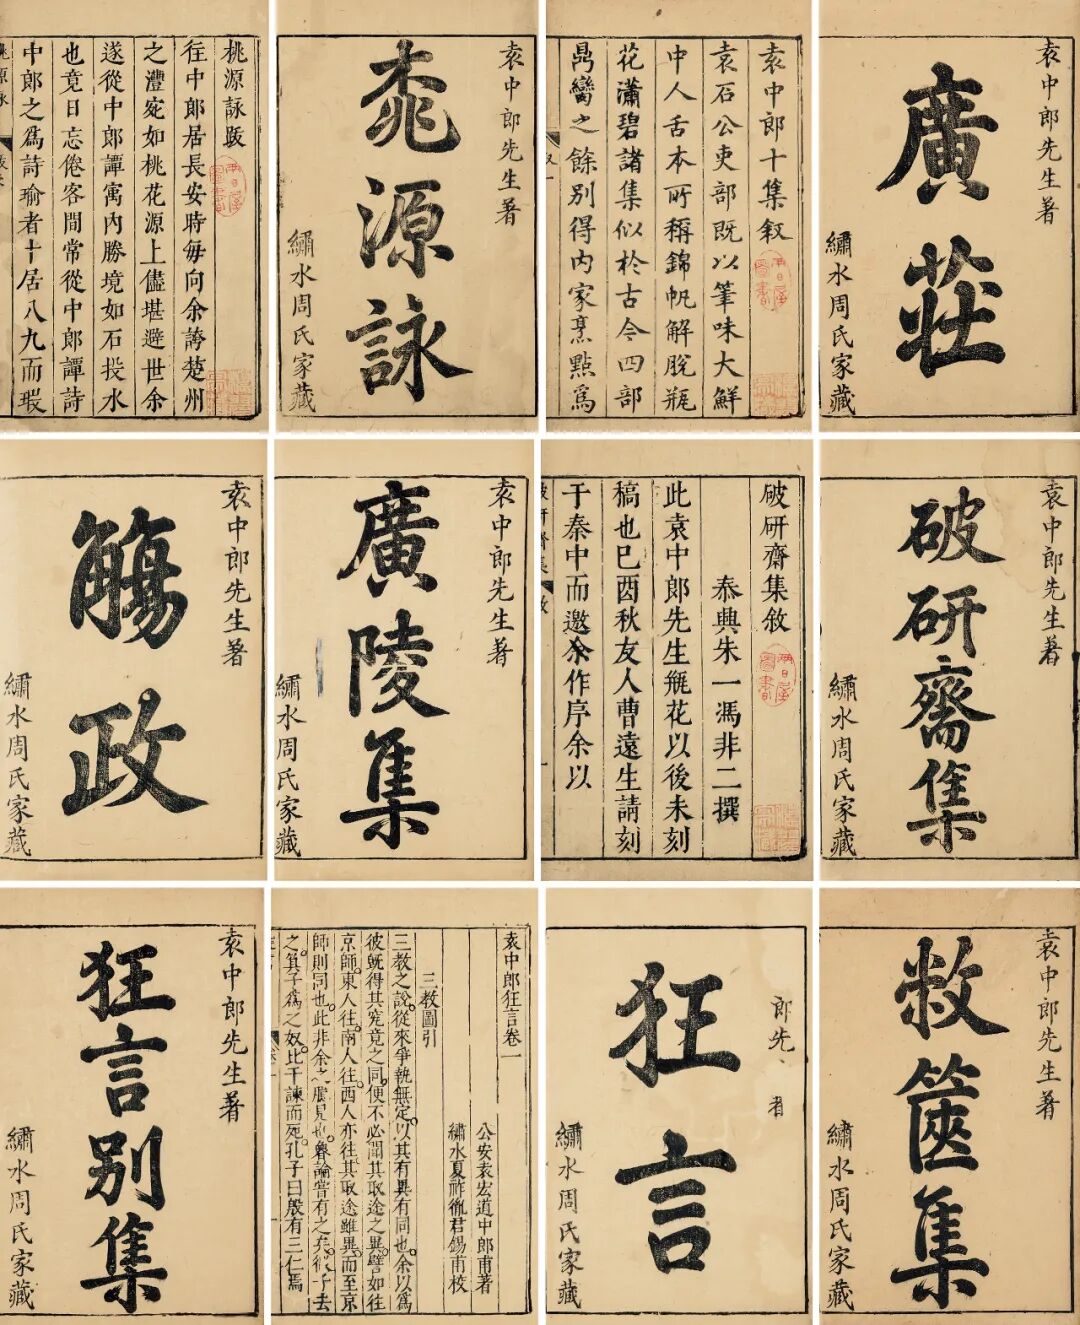 桃源詠跋
往中郎居長安時每向余誇楚州
之澧宛如桃花源上儘堪避世余
遂從中郎譚寓內勝境如石投水
也竟日忘倦客間常從中郎譚詩
中郎之爲詩瑜者十居八九而瑕
袁中郎先生著
桃源詠
繡水周氏家藏
袁中郎十集敘
袁石公吏部既以筆味大鮮
中人舌本所稱錦帆解脫瓶
花瀟碧諸集似於古今四部
鼎臠之餘別得內家烹點爲
袁中郎先生著
廣莊
繡水周氏家藏
袁中郎先生著
觴政
繡水周氏家藏
袁中郎先生著
廣陵集
繡水周氏家藏
破研齋集敘
泰興朱一馮非二撰
此袁中郎先生瓶花以後未刻
稿也已酉秋友人曹遠生請刻
于秦中而邀余作序余以
袁中郎先生著
破研齋集
繡水周氏家藏
袁中郎先生著
狂言別集
繡水周氏家藏
袁中郎狂言卷一
公安袁宏道中郎甫著
繡水夏祚徹君錫甫校
三教圖引
三教之說從來爭執無定以其有異有同也余以爲
彼既得其究竟之同便不必問其取途之異譬如往
京師東人往南人往西人亦往其取途雖異而至京
師則同也此非余之臆見也魯論嘗有之矣微子去
之箕子爲之奴比干諫而死孔子曰殷有三仁焉
郎先 著
狂言
繡水周氏家藏
袁中郎先生著
敝篋集
繡水周氏家藏